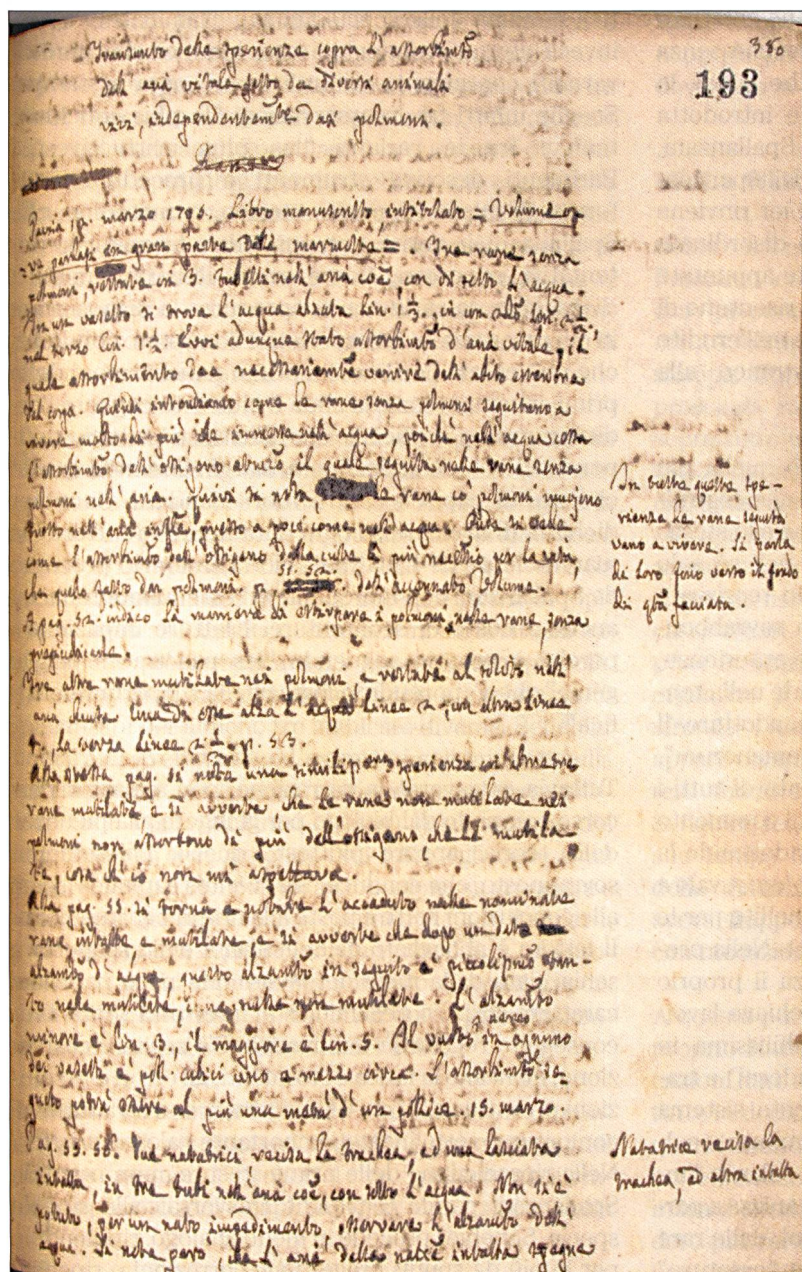 380
193
delle sperienze sopra l'assorbimto
dell'aria vitale fatto da diversi animali
vivi, independentemte dai polmoni.
Pavia, marzo 1795. Libro manoscritto, intitolato = Volume
in gran parte delle marmotte =. Tre rane senza
polmoni, in 3. tubetti nell'aria coe, con di sotto l'acqua.
In un vasetto si trova l'acqua alzata lin. 1 1/3.
nel terzo lin. Evvi adunque stato assorbimto d'aria vitale, il
quale assorbimento dee necessariamte venire dall'abito esteriore
del corpo. Quindi intendiamo come le rane senza polmoni seguitano a
vivere molto di più che immerse nell'acqua, poichè nell'acqua cessa
l'assorbimto dell'ossigeno aereo, il quale seguita nelle rane senza
polmoni nell'aria. Quivi si nota, le rane co' polmoni muojono
presto nell'aria presso a poco come nell'acqua. Onde si vede
come l'assorbimto dell'ossigeno della cute è più necessio per la
che quello fatto dai polmoni. p. 51. 52. dell'accennato Volume.
A pag. 52. indico la maniera di estirpare i polmoni nelle rane, senza
pregiudicarle.
Tre altre rane mutilate nei polmoni, e al solito nell'
aria chiusa. Una di esse alza l'acqua linee 2, un'altra linee
la terza linee 2 1/2. p. 53.
Alla stessa pag. si nota una sperienza con altre tre
rane mutilate, e si avverte, che le rane non mutilate nei
polmoni non assorbono di più dell'ossigeno, che le mutila-
te, cosa ch'io non mi aspettava.
Alla pag. 55. si torna a notare l'accaduto nelle nominate
rane intatte e mutilate, e si avverte che dopo un dato
alzamto d'acqua, questo alzamto in seguito è piccolissimo, tan-
to nelle mutilate, che nelle non mutilate. L'alzamto
minore è lin. 3., il maggiore è lin. 5. Al vuoto aereo in ognuno
dei vasetti è poll. cubici uno e mezzo circa. L'assorbimto
potrà essere al più una metà d'un pollice. 15. marzo.
Pag. 55. 56. Due natatrici, recisa la trachea, ed una lasciata
intatta, in tre tubi nell'aria coe, con sotto l'acqua. Non si è
potuto, per un nato impedimento, osservare l'alzamto dell'
acqua. Si nota però, che l'aria della natce intatta spegne
In tutte queste spe-
rienze le rane seguita
vano a vivere. Si parla
di loro verso il fondo
di qta facciata.
Natatrice recisa la
trachea, ed altra intatta